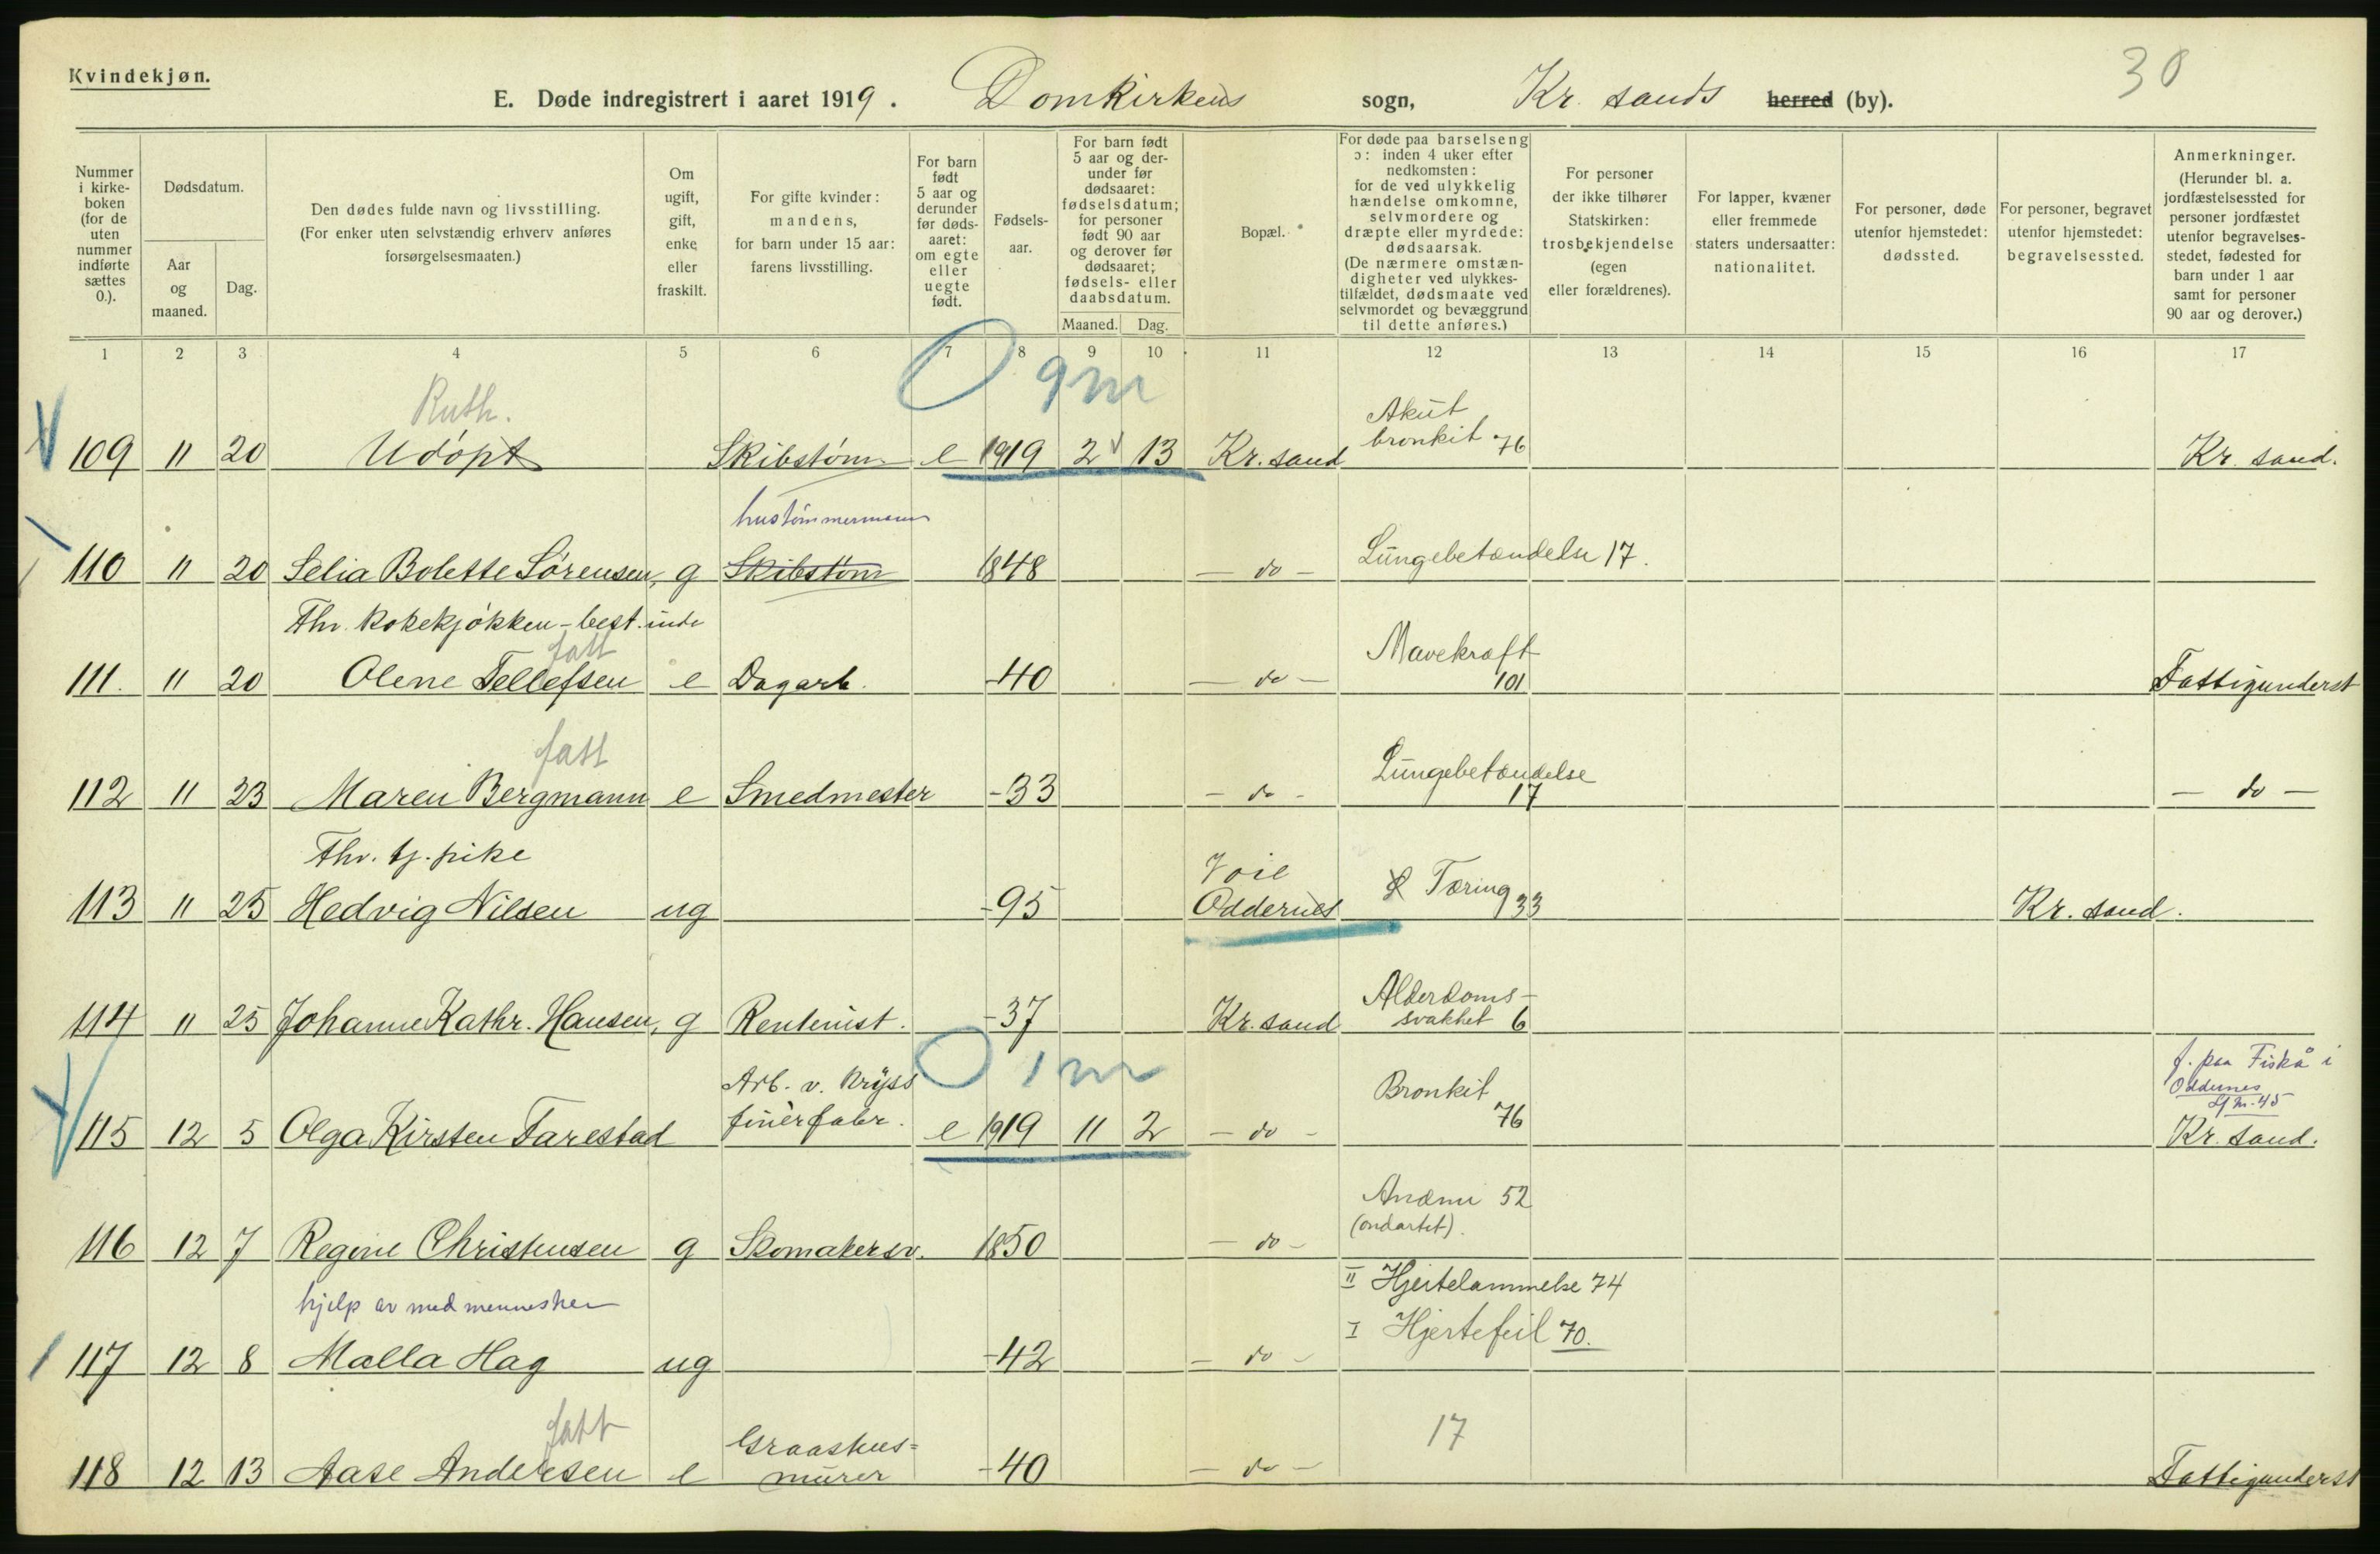 Kvindekjøn.
30
E. Døde indregistrert i aaret 1919. Domkirkens sogn, Kr. sands herred (by).
Nummer i kirke-boken (for de uten nummer indførte sættes 0.).
Dødsdatum.
Aar og maaned.
Dag.
Den dødes fulde navn og livsstilling.
(For enker uten selvstændig erhverv anføres forsørgelsesmaaten.)
Om ugift, gift, enke eller fraskilt.
For gifte kvinder: mandens, for barn under 15 aar: farens livsstilling.
For barn født 5 aar og derunder før døds-aaret: om egte eller uegte født.
Fødsels-aar.
For barn født 5 aar og der-under før dødsaaret: fødselsdatum; for personer født 90 aar og derover før dødsaaret; fødsels- eller daabsdatum.
Maaned. Dag.
Bopæl.
For døde paa barselseng ɔ: inden 4 uker efter nedkomsten: for de ved ulykkelig hændelse omkomne, selvmordere og dræpte eller myrdede: dødsaarsak. (De nærmere omstæn-digheter ved ulykkes-tilfældet, dødsmaate ved selvmordet og bevæggrund til dette anføres.)
For personer der ikke tilhører Statskirken: trosbekjendelse (egen eller forældrenes).
For lapper, kvæner eller fremmede staters undersaatter: nationalitet.
For personer, døde utenfor hjemstedet: dødssted.
For personer, begravet utenfor hjemstedet: begravelsessted.
Anmerkninger.
(Herunder bl. a. jordfæstelsessted for personer jordfæstet utenfor begravelses-stedet, fødested for barn under 1 aar samt for personer 90 aar og derover.)
1 2 3 4 5 6 7 8 9 10 11 12 13 14 15 16 17
O 9 m
Ruth.
Akut bronkit 76
109 11 20 Udöpt Skibstöm. e 1919 2 13 Kr. sand Kr. sand.
hustömmermann
110 11 20 Selia Bolette Sörensen, g Skibstöm 1848 - do - Lungebetændelse 17.
Fhv. kokekjökken-best.inde
fatt
111. 11 20 Olene Tellefsen e Dagarb. -40 - do - Mavekræft 101 Fattigunderst
fatt
112 11 23 Maren Bergmann e Smedmester -33 - do - Lungebetændelse 17 - do -
Fhv. tj. pike
113 11 25 Hedvig Nilsen ug -95 Voie Oddernes Tæring 33 Kr. sand.
114 11 25 Johanne Kathr. Hansen, g Rentenist. -37 Kr. sand Alderdoms-svakhet 6
O 1 m
f. paa Fiskå i Oddernes
Arb. v. Kryss
115 12 5 Olga Kirsten Farestad finèrfabr. e 1919 11 2 - do - Bronkit 76 Kr. sand.
116 12 7 Regine Christensen g Skomakersv. 1850 - do - Anæmi 52 (ondartet).
hjelp av medmennesker
II Hjertelammelse 74
I Hjertefeil 70.
117 12 8 Malla Hag ug -42 - do -
fatt
17
118 12 13 Aase Andersen e Graashus=murer -40 - do - Fattigunderst